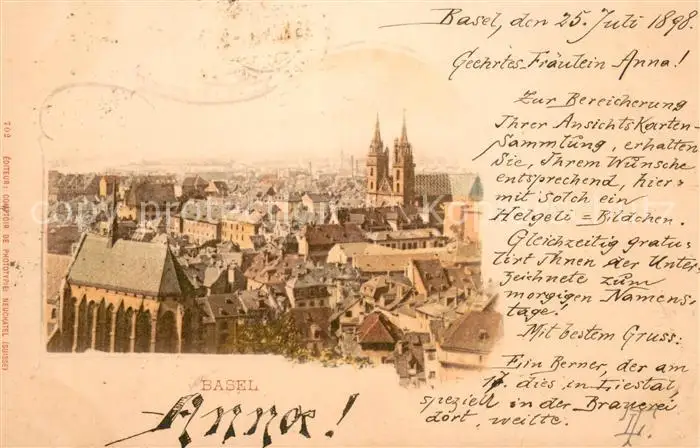 Basel, den 25. Juli 1898.
Geehrtes Fräulein Anna!
Zur Bereicherung
Ihrer Ansichtskarten-
Sammlung, erhalten
Sie, Ihrem Wunsche
entsprechend, hier=
mit solch ein
Helgeli=Bildchen.
Gleichzeitig gratu
lirt Ihnen der Unter
zeichnete zum
morgigen Namens-
tage!
Mit bestem Gruss:
Ein Berner, der am
17. dies in Liestal,
speziell in der Brauerei
dort, weilte.
BASEL
Anna!
702 ÉDITEUR: COMPTOIR DE PHOTOTYPIE NEUCHATEL (SUISSE)